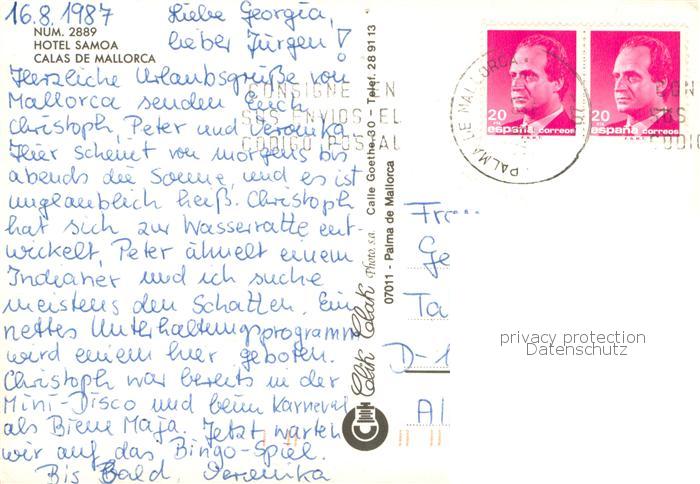 16.8.1987
NUM. 2889
HOTEL SAMOA
CALAS DE MALLORCA
Liebe Georgia,
lieber Jürgen!
Herzliche Urlaubsgrüße von
Mallorca senden Euch
Christoph, Peter und Veronika.
Hier scheint von morgens bis
abends die Sonne, und es ist
unglaublich heiß. Christoph
hat sich zur Wasserratte ent-
wickelt, Peter ähnelt einem
Indianer und ich suche
meistens den Schatten. Ein
nettes Unterhaltungsprogramm
wird einem hier geboten.
Christoph war bereits in der
Mini-Disco und beim Karneval
als Biene Maja. Jetzt warten
wir auf das Bingo-Spiel.
Bis bald, Veronika
CONSIGNE EN
SUS ENVIOS EL
CODIGO POSTAL
Clik Clak Photo, s.a. Calle Goethe, 30 - Telef. 28 91 13
07011 - Palma de Mallorca
PALMA DE MALLORCA
20 PTA
españa correos
20 PTA
españa correos
CON
SUS
CODIG
Fr
Ge
Ta
D-1
Al
privacy protection
Datenschutz